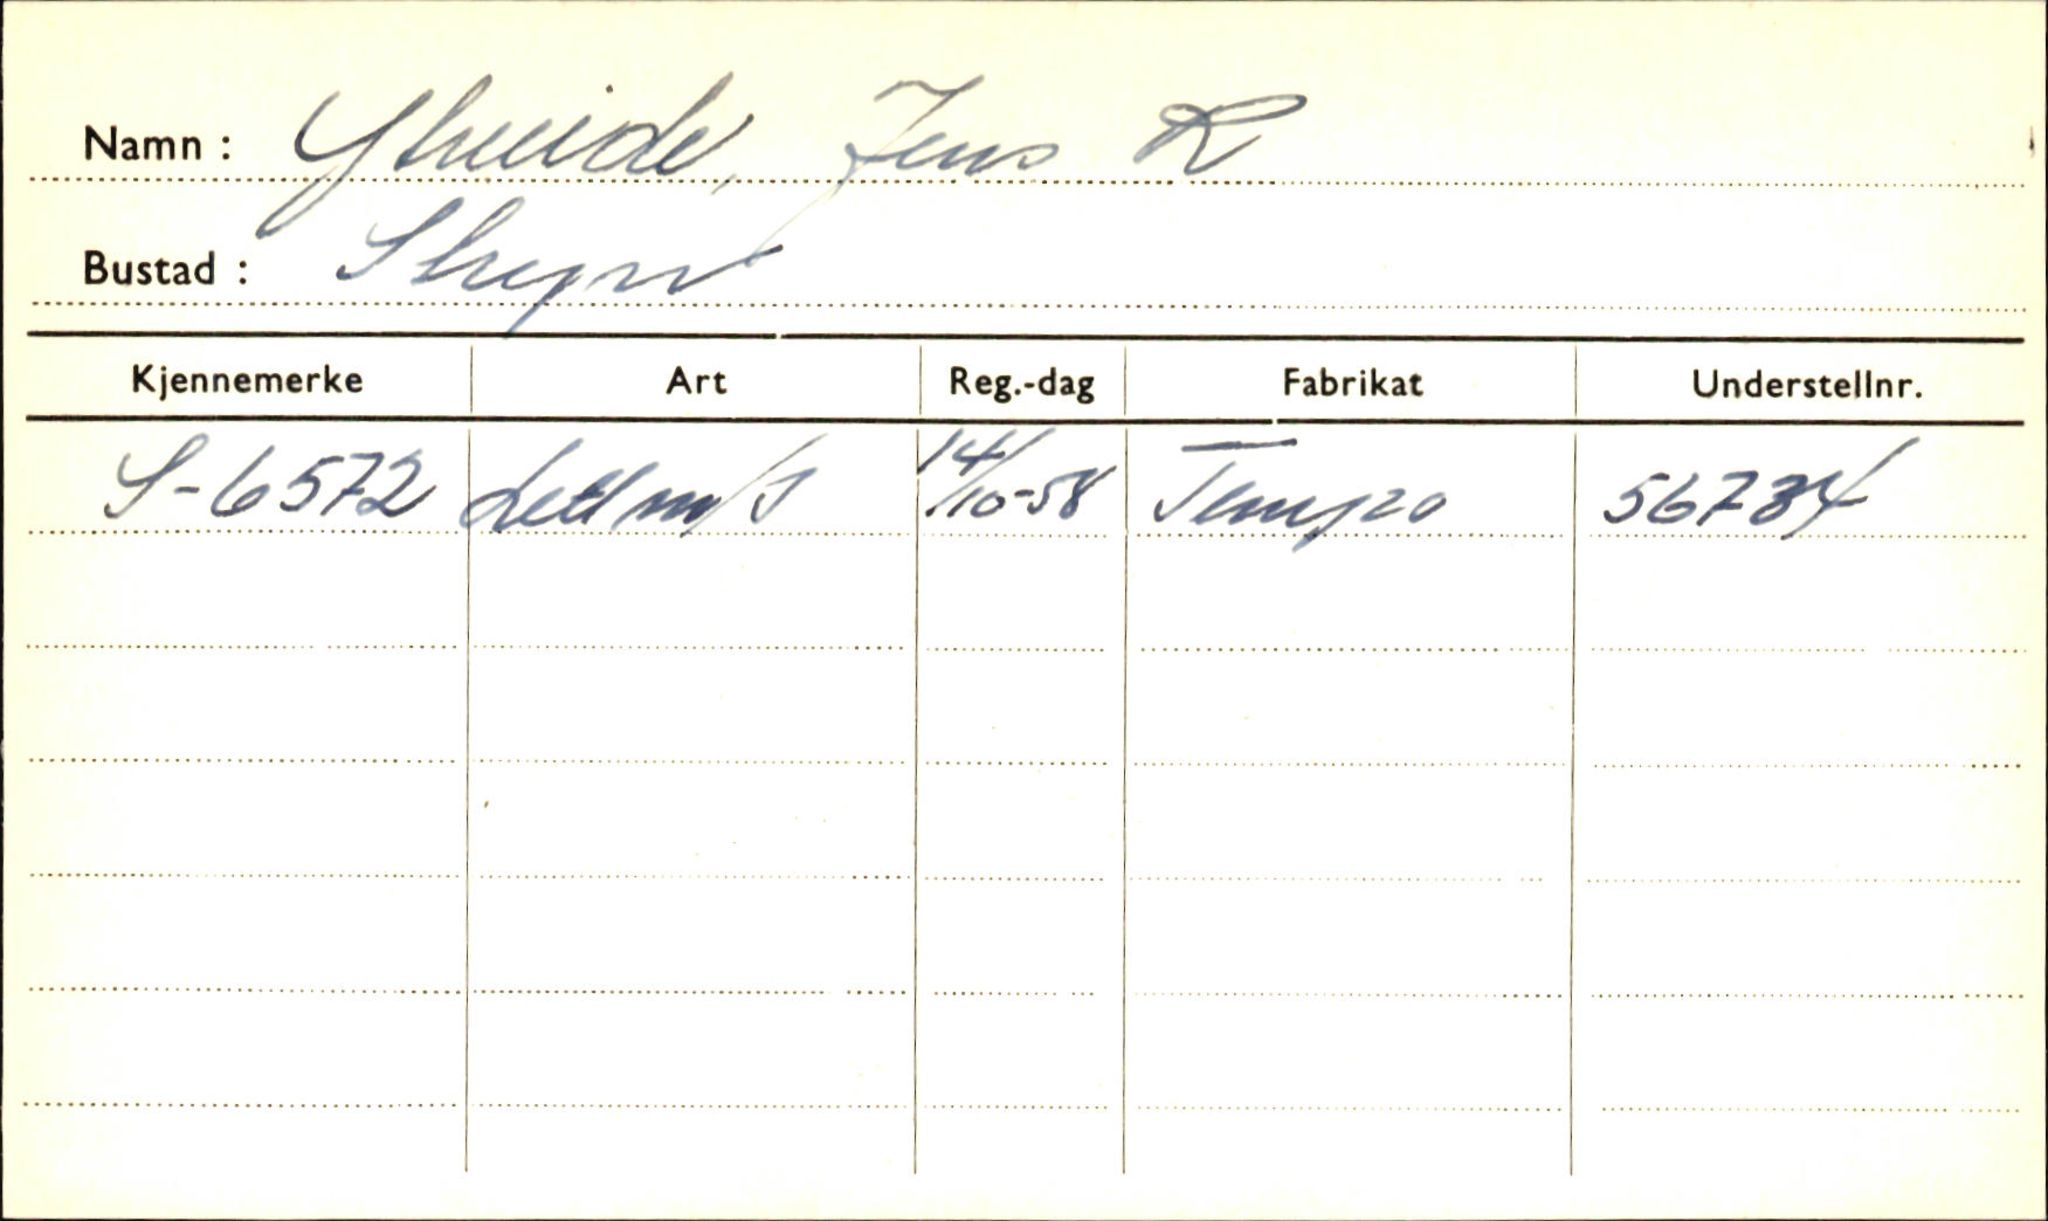 Namn: Ytreeide, Jens R
Bustad: Stryn
Kjennemerke Art Reg.-dag Fabrikat Understellnr.
S-6572 Lett m/s 14/10-58 Tempo 56734